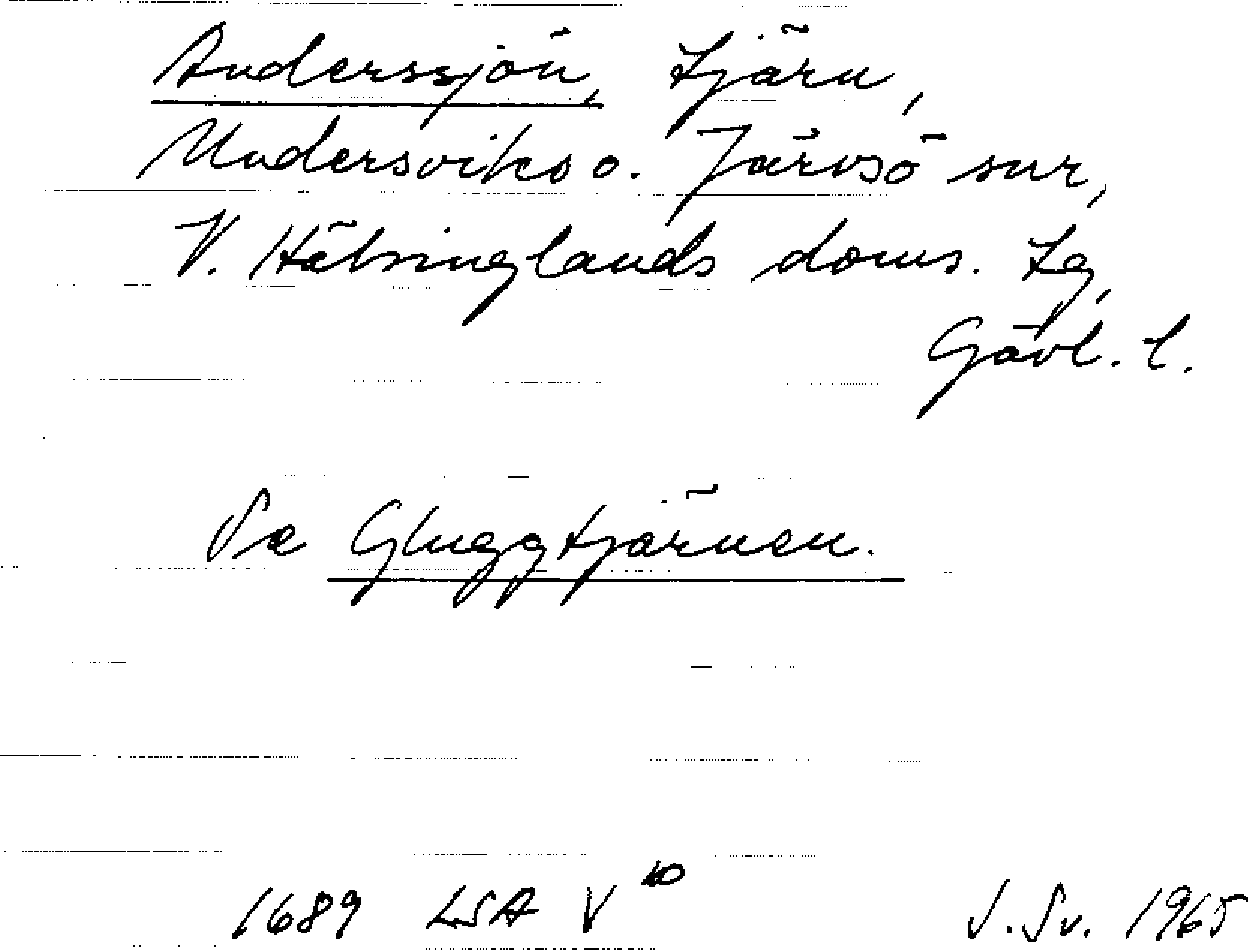 Anderssjön, tjärn,
Undersviks o. Järvsö snr,
V. Hälsinglands doms. tg,
Gävl. l.
Se Gluggtjärnen.
1689 LSA V 10 J. Sv. 1965